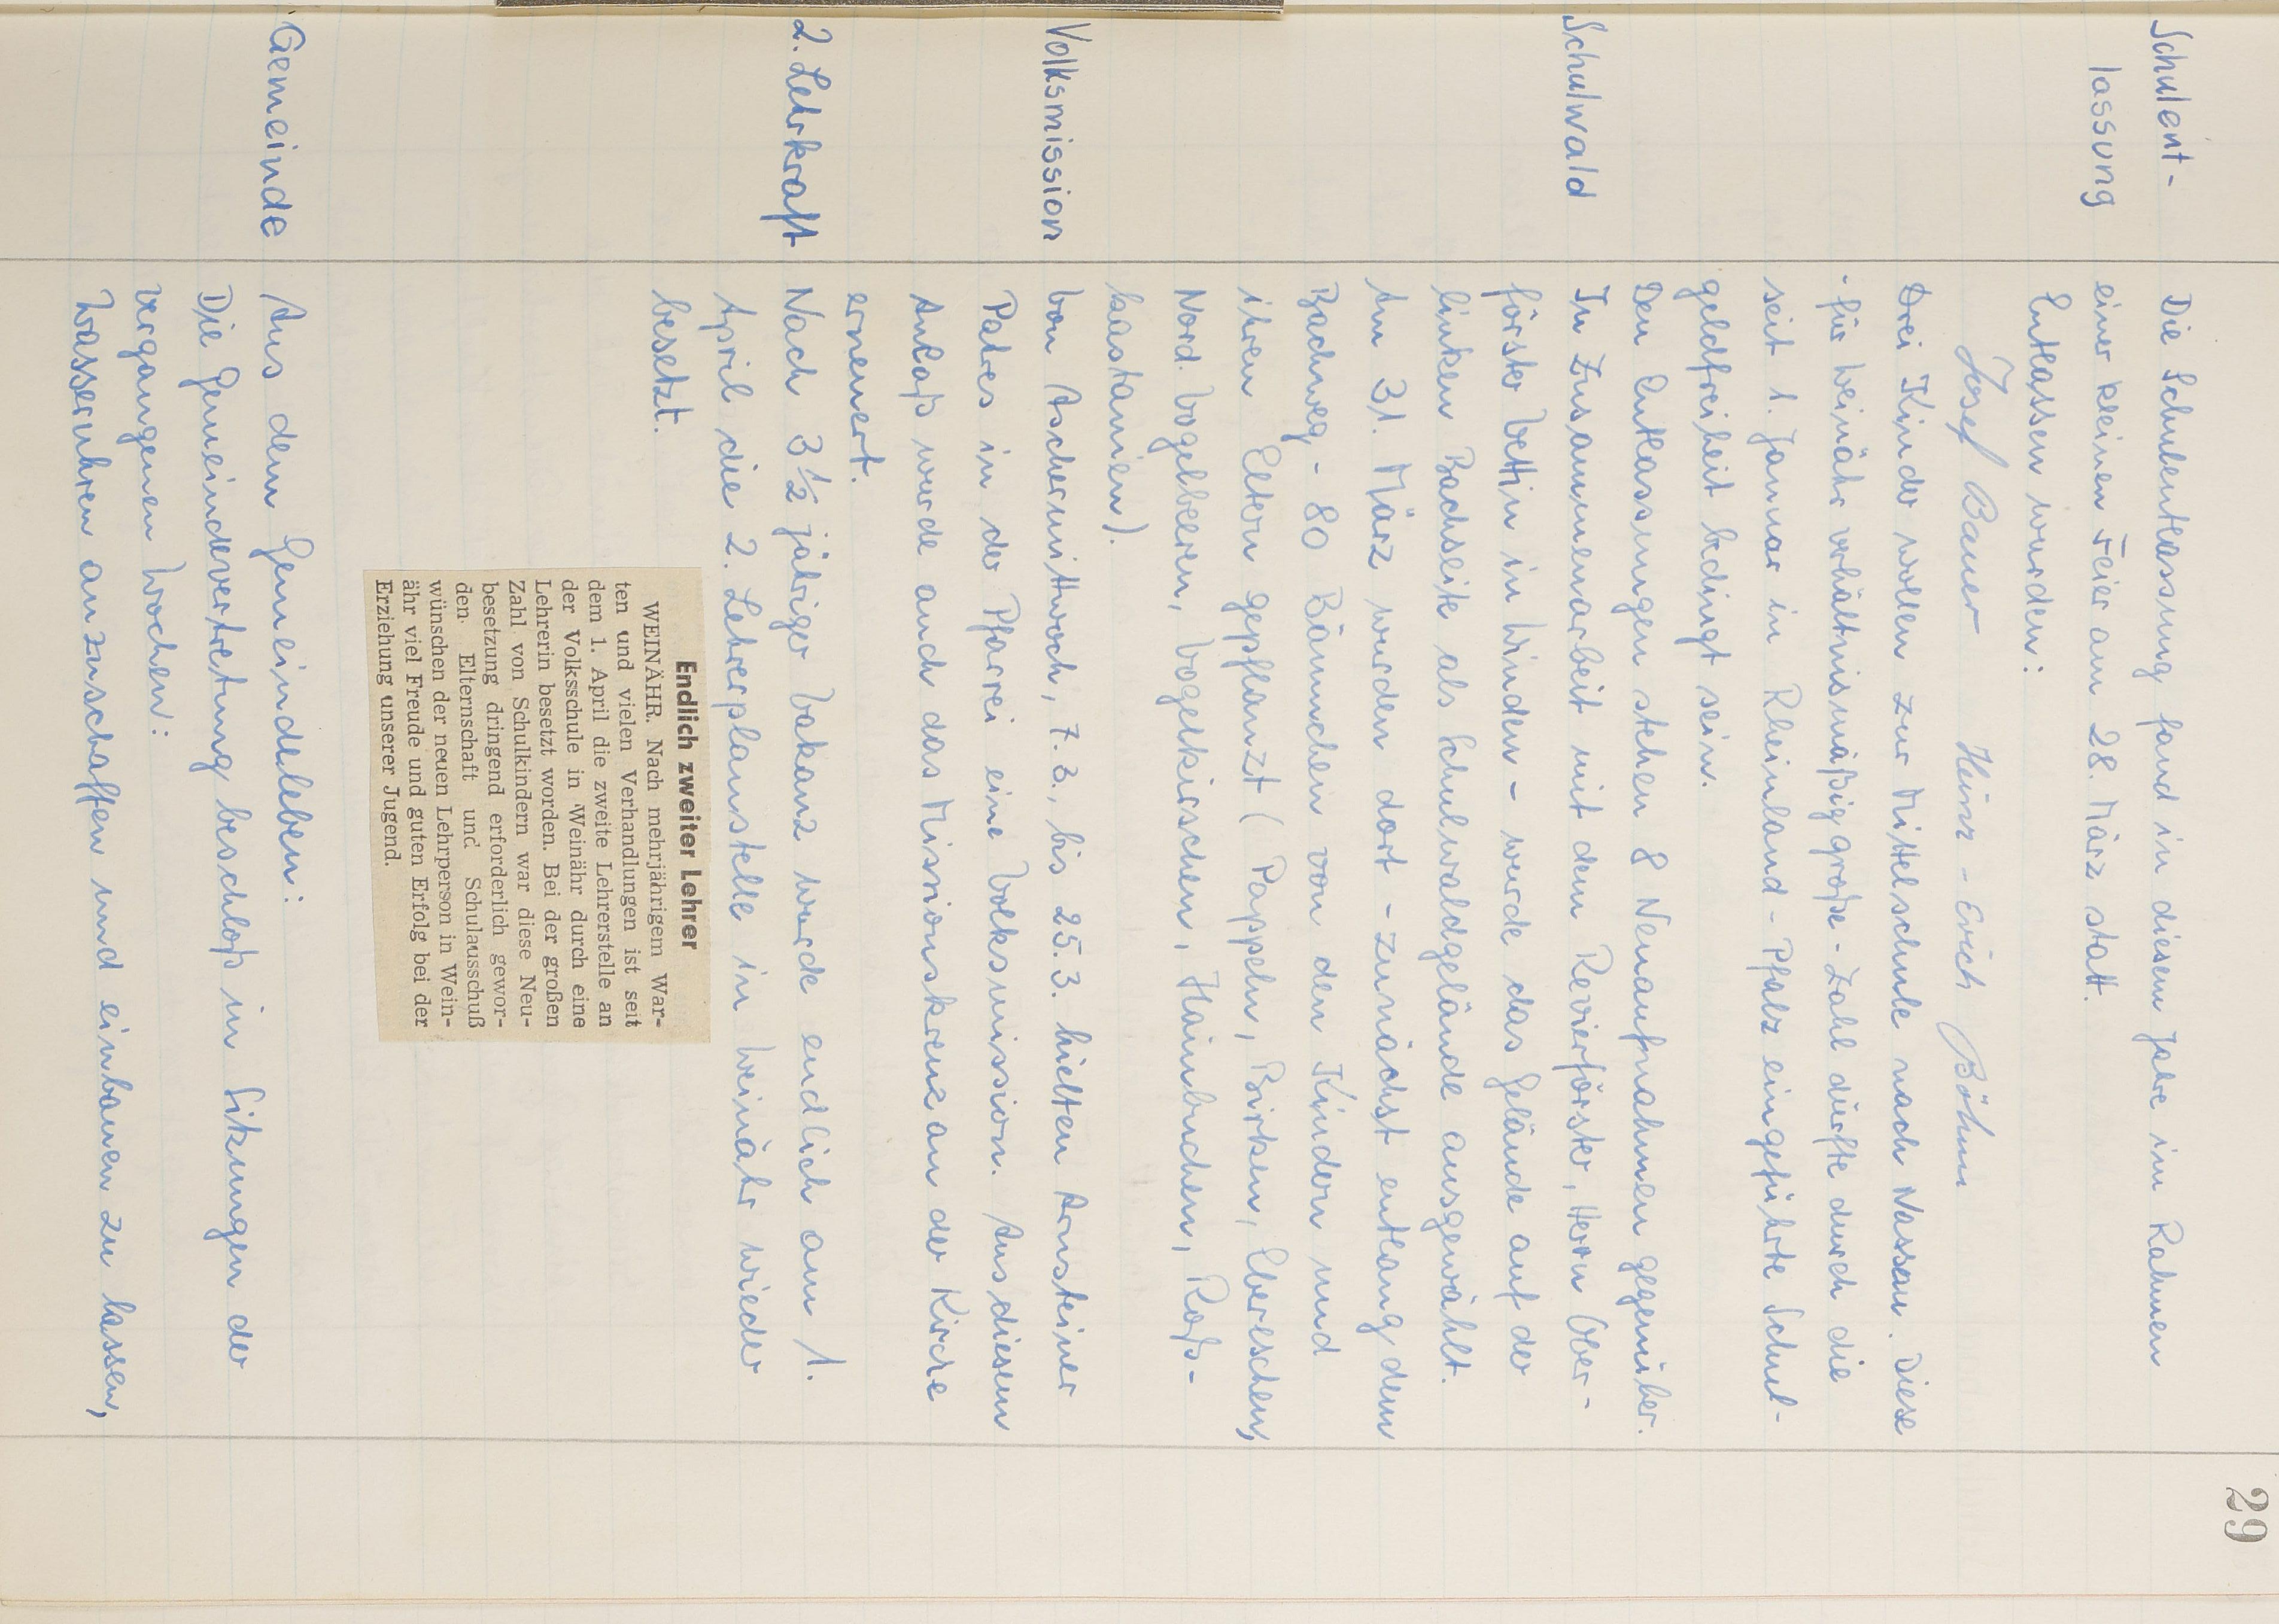 29
Schulent-
lassung
Die Schulentlassung fand in diesem Jahre im Rahmen
einer kleinen Feier am 28. März statt.
Entlassen wurden:
Josef Bauer Heinz-Erich Böhm
Drei Kinder wollen zur Mittelschule nach Nassau. Diese
- für Weinähr verhältnismäßig große - Zahl dürfte durch die
seit 1. Januar in Rheinland-Pfalz eingeführte Schul-
geldfreiheit bedingt sein.
Den Entlassungen stehen 8 Neuaufnahmen gegenüber.
Schulwald
In Zusammenarbeit mit dem Revierförster, Herrn Ober-
förster Bettin in Winden - wurde das Gelände auf der
linken Bachseite als Schulwaldgelände ausgewählt.
Am 31. März wurden dort - zunächst entlang dem
Bachweg - 80 Bäumchen von den Kindern und
ihren Eltern gepflanzt (Pappeln, Birken, Ebereschen,
Nord. Vogelbeeren, Vogelkirschen, Hainbuchen, Roß-
kastanien).
Volksmission
Von Aschermittwoch, 7.3., bis 25.3. hielten Arnsteiner
Patres in der Pfarrei eine Volksmission. Aus diesem
Anlaß wurde auch das Missionskreuz an der Kirche
erneuert.
2. Lehrkraft
Nach 3½ jähriger Vakanz wurde endlich am 1.
April die 2. Lehrerplanstelle in Weinähr wieder
besetzt.
Endlich zweiter Lehrer
WEINÄHR. Nach mehrjährigem War-
ten und vielen Verhandlungen ist seit
dem 1. April die zweite Lehrerstelle an
der Volksschule in Weinähr durch eine
Lehrerin besetzt worden. Bei der großen
Zahl von Schulkindern war diese Neu-
besetzung dringend erforderlich gewor-
den. Elternschaft und Schulausschuß
wünschen der neuen Lehrperson in Wein-
ähr viel Freude und guten Erfolg bei der
Erziehung unserer Jugend.
Gemeinde
Aus dem Gemeindeleben:
Die Gemeindevertretung beschloß in Sitzungen der
vergangenen Wochen:
Wasseruhren anzuschaffen und einbauen zu lassen,